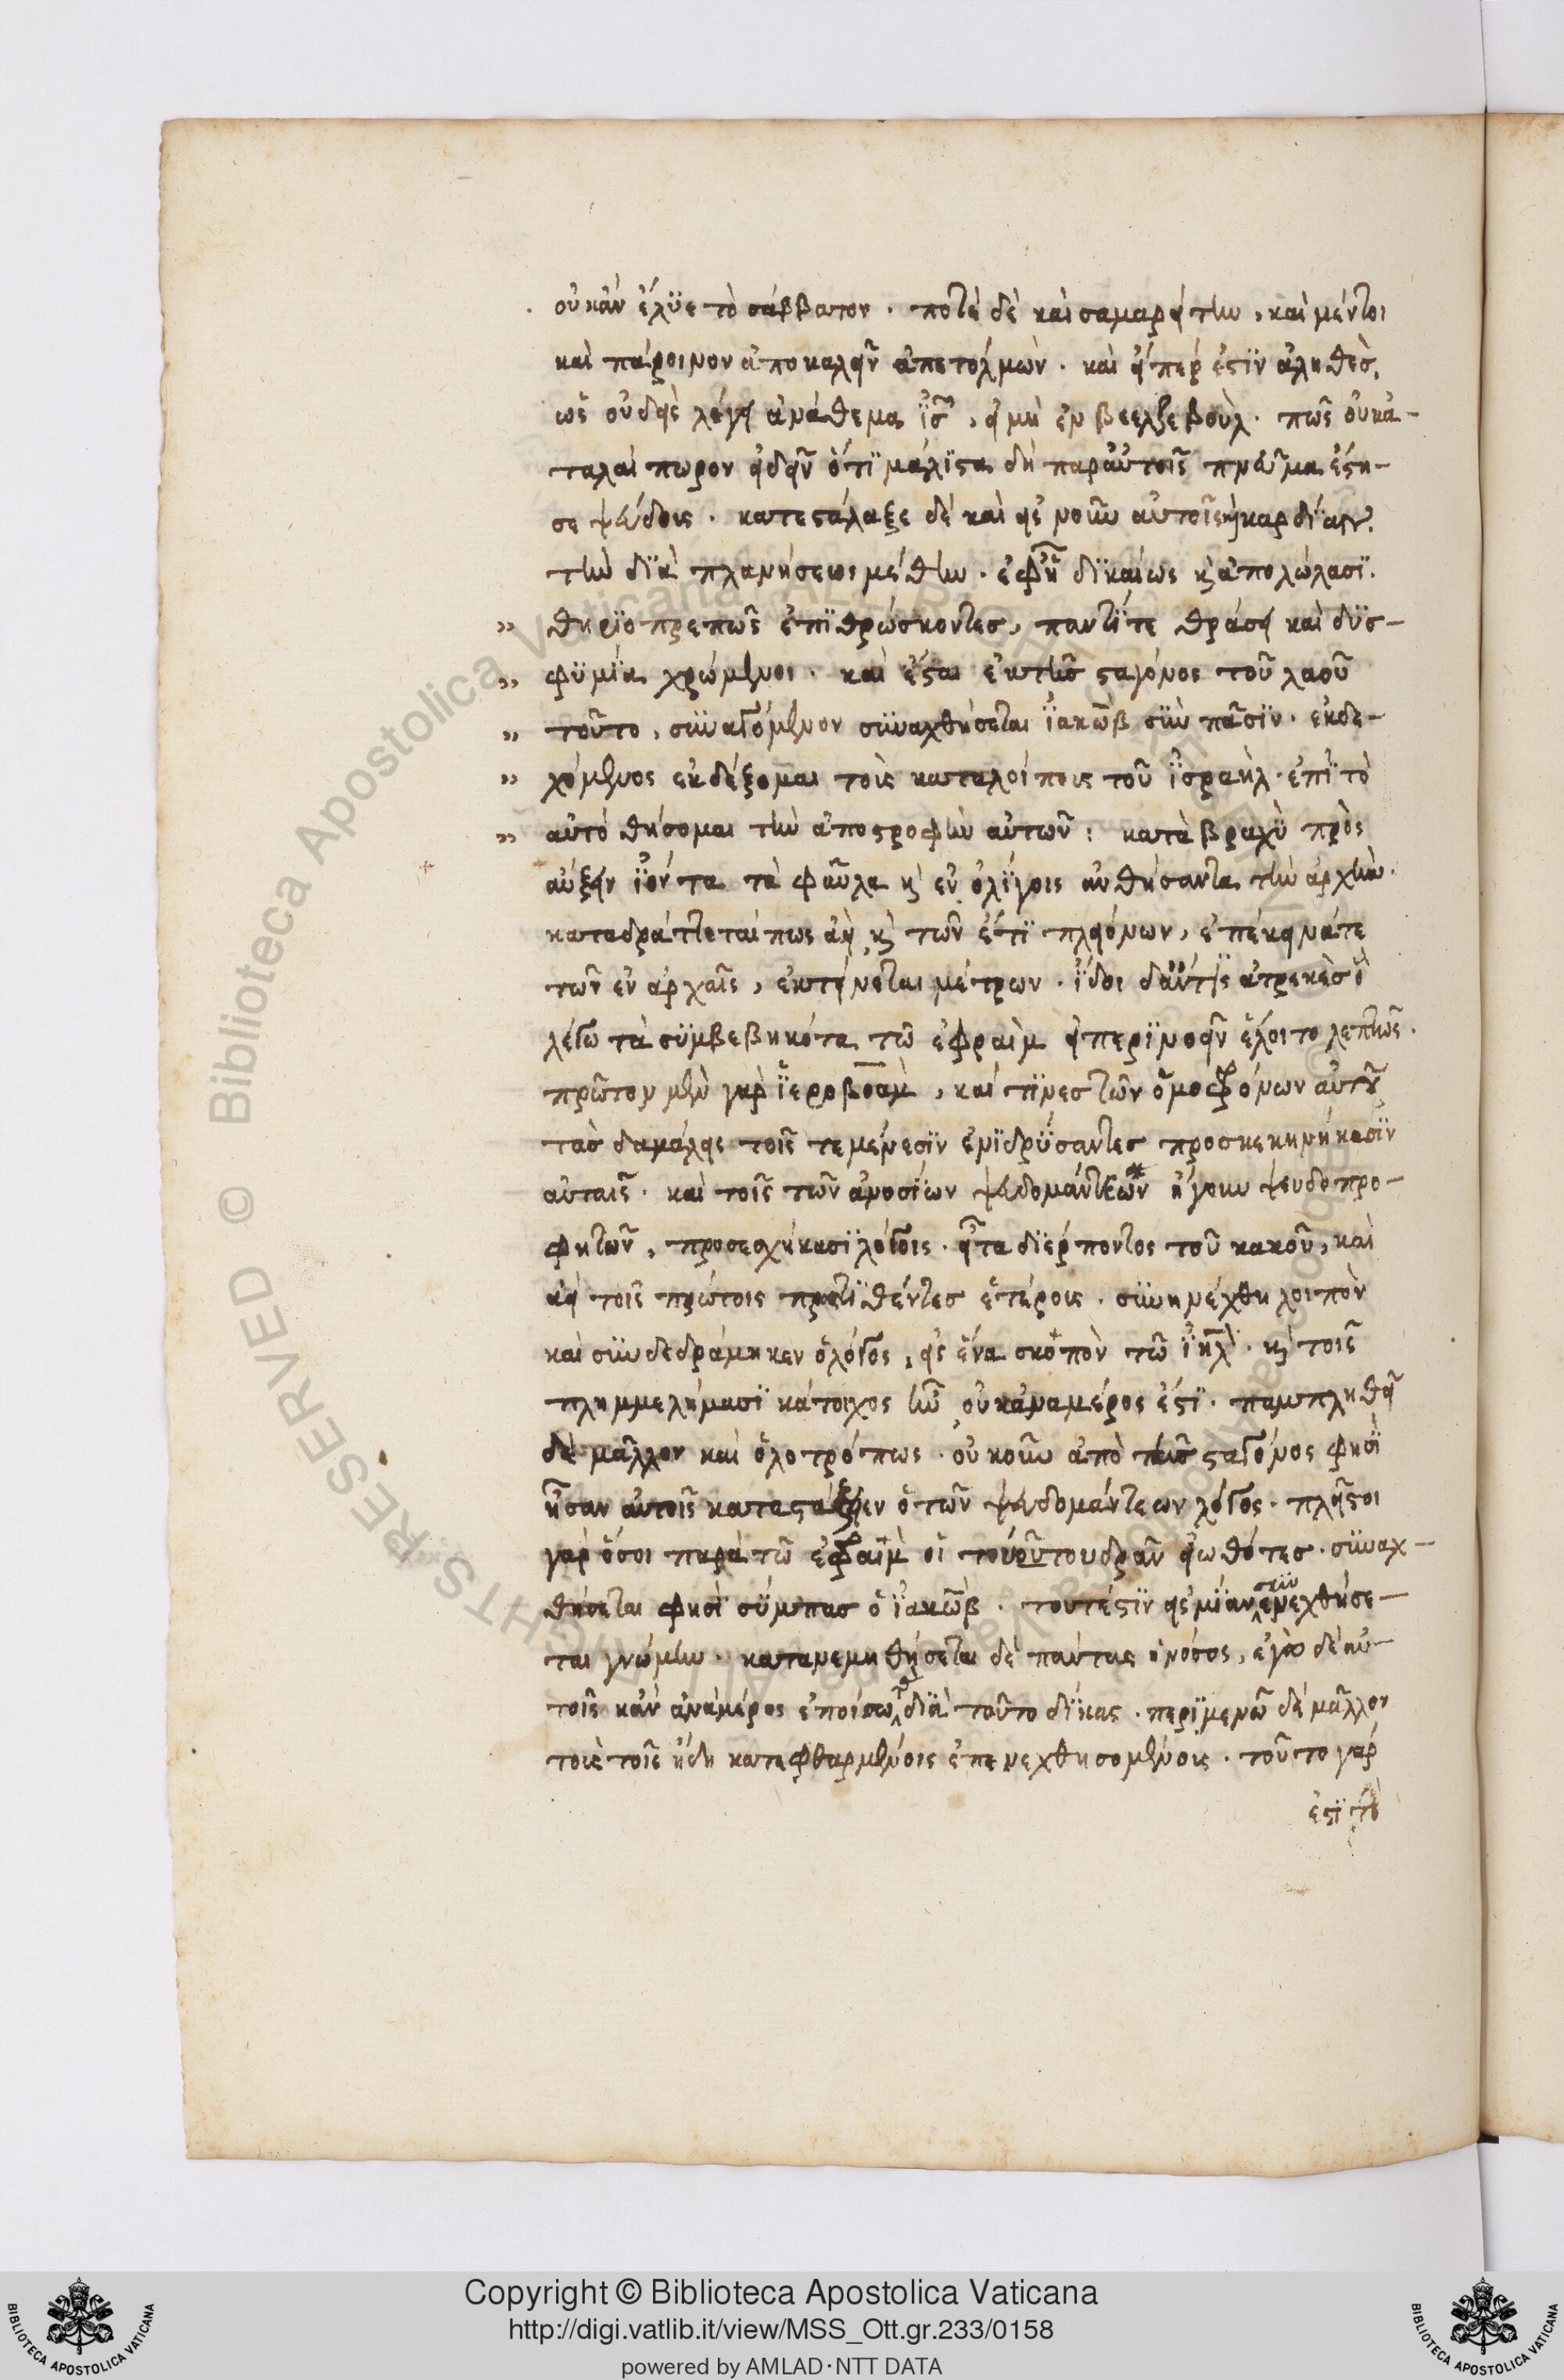 οὐκ ἂν ἔλυε τὸ σάββατον. ποτὲ δὲ καὶ σαμαρείτην, καὶ μέντοι
καὶ πάροινον ἀποκαλεῖν ἀπετόλμων. καὶ εἴπερ ἐστὶν ἀληθὲς,
ὡς οὐδεὶς λέγει ἀνάθεμα ἰς, εἰ μὴ ἐν βεελζεβοὺλ. πῶς οὐκ ἀ-
ταλαίπωρον εἰδεῖν ὅτι μάλιστα δὴ παρ αὐτοῖς πνεῦμα ἔστη-
σε ψεύδους. κατεστάλαξε δὲ καὶ εἰς νοῦν αὐτοῖς καὶ καρδίαν,
τὴν διὰ πλανήσεως μέθην. ἐφ ᾗ δικαίως καὶ ἀπολώλασι.
» θηριοπρεπῶς ἐπιθρώσκοντες, παντί τε θράσει καὶ δυσ-
» φυμία χρώμενοι. καὶ ἔσται ἐκ τῆς σταγόνος τοῦ λαοῦ
» τοῦτο, συναγόμενον συναχθήσεται ἰακὼβ σὺν πᾶσιν. ἐκδε-
» χόμενος ἐκδέξομαι τοὺς καταλοίπους τοῦ ἰσραὴλ. ἐπὶ τὸ
» αὐτὸ θήσομαι τὴν ἀποστροφὴν αὐτῶν: κατὰ βραχὺ πρὸς
αὔξειν ἰόντα τὰ φαῦλα καὶ ἐν ὀλίγοις ἀνθήσαντα τὴν ἀρχὴν.
καταδράττεταί πως ἀεὶ καὶ τῶν ἔτι πλειόνων, ἐπέκεινά τε
τῶν ἐν ἀρχαῖς, ἐκτείνεται μέτρων. ἴδοι δ ἄν τις ἀτρεκὲς ὃ
λέγω τὰ συμβεβηκότα τῶ ἐφραὶμ εἰ περινοεῖν ἕλοιτο λεπτῶς.
πρῶτον μὲν γὰρ ἱεροβοὰμ, καί τινες τῶν ὁμοφρόνων αὐτοῦ
τὰς δαμάλεις τοῖς τεμένεσιν ἐνιδρύσαντες προσκεκηνήκασιν
αὐταῖς. καὶ τοῖς τῶν ἀνοσίων ψευδομάντεων ἤγουν ψευδοπρο-
φητῶν, προσεσχήκασι λόγοις. εἶτα διέρποντος τοῦ κακοῦ, καὶ
ἀεὶ τοῖς πρώτοις προστιθέντες ἑτέροις. συνηνέχθη λοιπὸν
καὶ συνδεδράμηκεν ὁ λόγος, εἰς ἕνα σκοπὸν τῶ ἰηλ. καὶ τοῖς
πλημμελήμασι κάτοχος ἦν οὐκ ἀναμέρος ἔτι. παμπληθεῖ
δὲ μᾶλλον καὶ ὁλοτρόπως. οὐκοῦν ἀπὸ τῆς σταγόνος φησὶ
ἦσαν αὐτοῖς κατασταξεν ὁ τῶν ψευδομάντεων λόγος. πλεῖστοι
γὰρ ὅσοι παρὰ τῶ ἐφραὶμ οἱ τοῦτου δρᾶν εἰωθότες. συναχ-
θήσεται φησὶ σύμπας ὁ ἰακὼβ. τουτέστιν εἰς μίαν συνενεχθήσε-
ται γνώμην. κατανεμηθήσεται δὲ πάντας ἡ νόσος, ἐγὼ δὲ αὐ-
τοῖς κἂν ἀναμέρος ἐποίσω τὰς διὰ τοῦτο δίκας. περιμενῶ δὲ μᾶλλον
τοὺς τοῖς ἤδη κατεφθαρμένοις ἐπενεχθησομένοις. τοῦτο γάρ
ἐστι τὸ
Copyright © Biblioteca Apostolica Vaticana
http://digi.vatlib.it/view/MSS_Ott.gr.233/0158
powered by AMLAD·NTT DATA